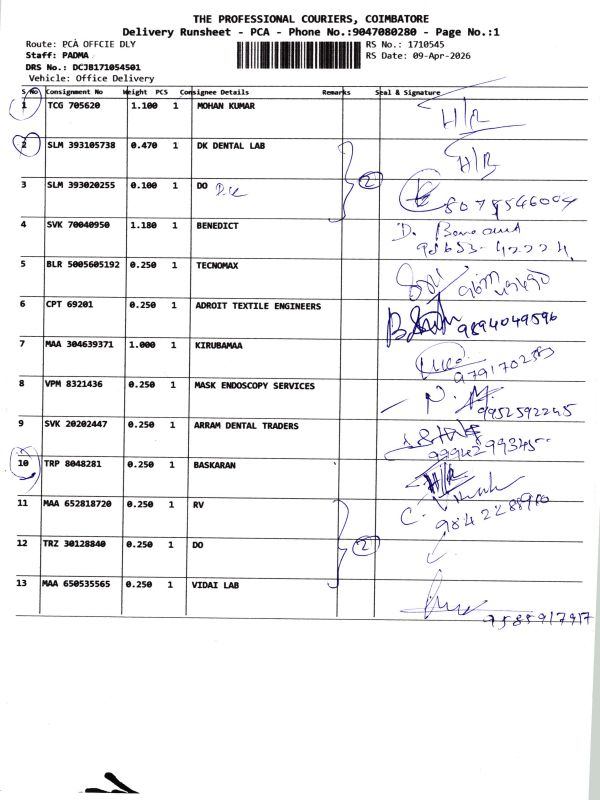 THE PROFESSIONAL COURIERS, COIMBATORE
Delivery Runsheet - PCA - Phone No.:9047080280 - Page No.:1
Route: PCA OFFCIE DLY
RS No.: 1710545
Staff: PADMA
RS Date: 09-Apr-2026
DRS No.: DCJB171054501
Vehicle: Office Delivery
S No Consignment No Weight PCS Consignee Details Remarks Seal & Signature
1 TCG 705620 1.100 1 MOHAN KUMAR H/R
2 SLM 393105738 0.470 1 DK DENTAL LAB H/R
2
3 SLM 393020255 0.100 1 DO DK
4 SVK 70040950 1.180 1 BENEDICT D.
98653-42224
5 BLR 5005605192 0.250 1 TECNOMAX
6 CPT 69201 0.250 1 ADROIT TEXTILE ENGINEERS 9894049596
7 MAA 304639371 1.000 1 KIRUBAMAA
8 VPM 8321436 0.250 1 MASK ENDOSCOPY SERVICES N. M.
9952592245
9 SVK 20202447 0.250 1 ARRAM DENTAL TRADERS
9994299345
10 TRP 8048281 0.250 1 BASKARAN H/R
11 MAA 652818720 0.250 1 RV C.
2
12 TRZ 30128840 0.250 1 DO
13 MAA 650535565 0.250 1 VIDAI LAB
9585917917